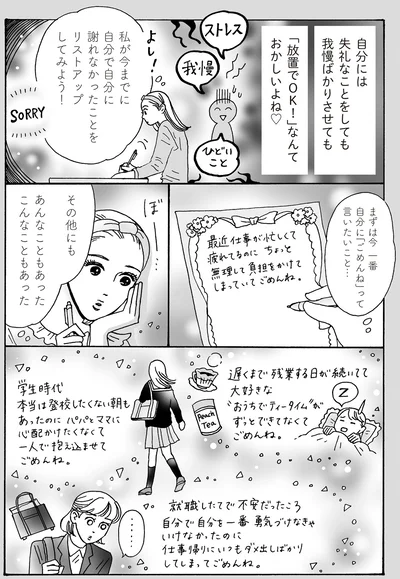 自分には
失礼なことをしても
我慢ばかりさせても
「放置でOK!」なんて
おかしいよね♡
ストレス
我慢
ひどい
こと
よし!
私が今までに
自分で自分に
謝れなかったことを
リストアップ
してみよう!
SORRY
まずは今一番
自分に「ごめんね」って
言いたいこと…
最近仕事が忙しくて
疲れてるのに ちょっと
無理して負担をかけて
しまっていてごめんね。
ぽ…
その他にも
あんなこともあった
こんなこともあった
遅くまで残業する日が続いてて
大好きな
"おうちでティータイム"が
ずっとできてなくて
ごめんね。
Z
Peach
Tea
学生時代
本当は登校したくない朝も
あったのに パパとママに
心配かけたくなくて
一人で抱え込ませて
ごめんね。
就職したてで不安だったころ
自分で自分を一番 勇気づけなきゃ
いけなかったのに
仕事帰りにいつもダメ出しばかり
してしまってごめんね。
……